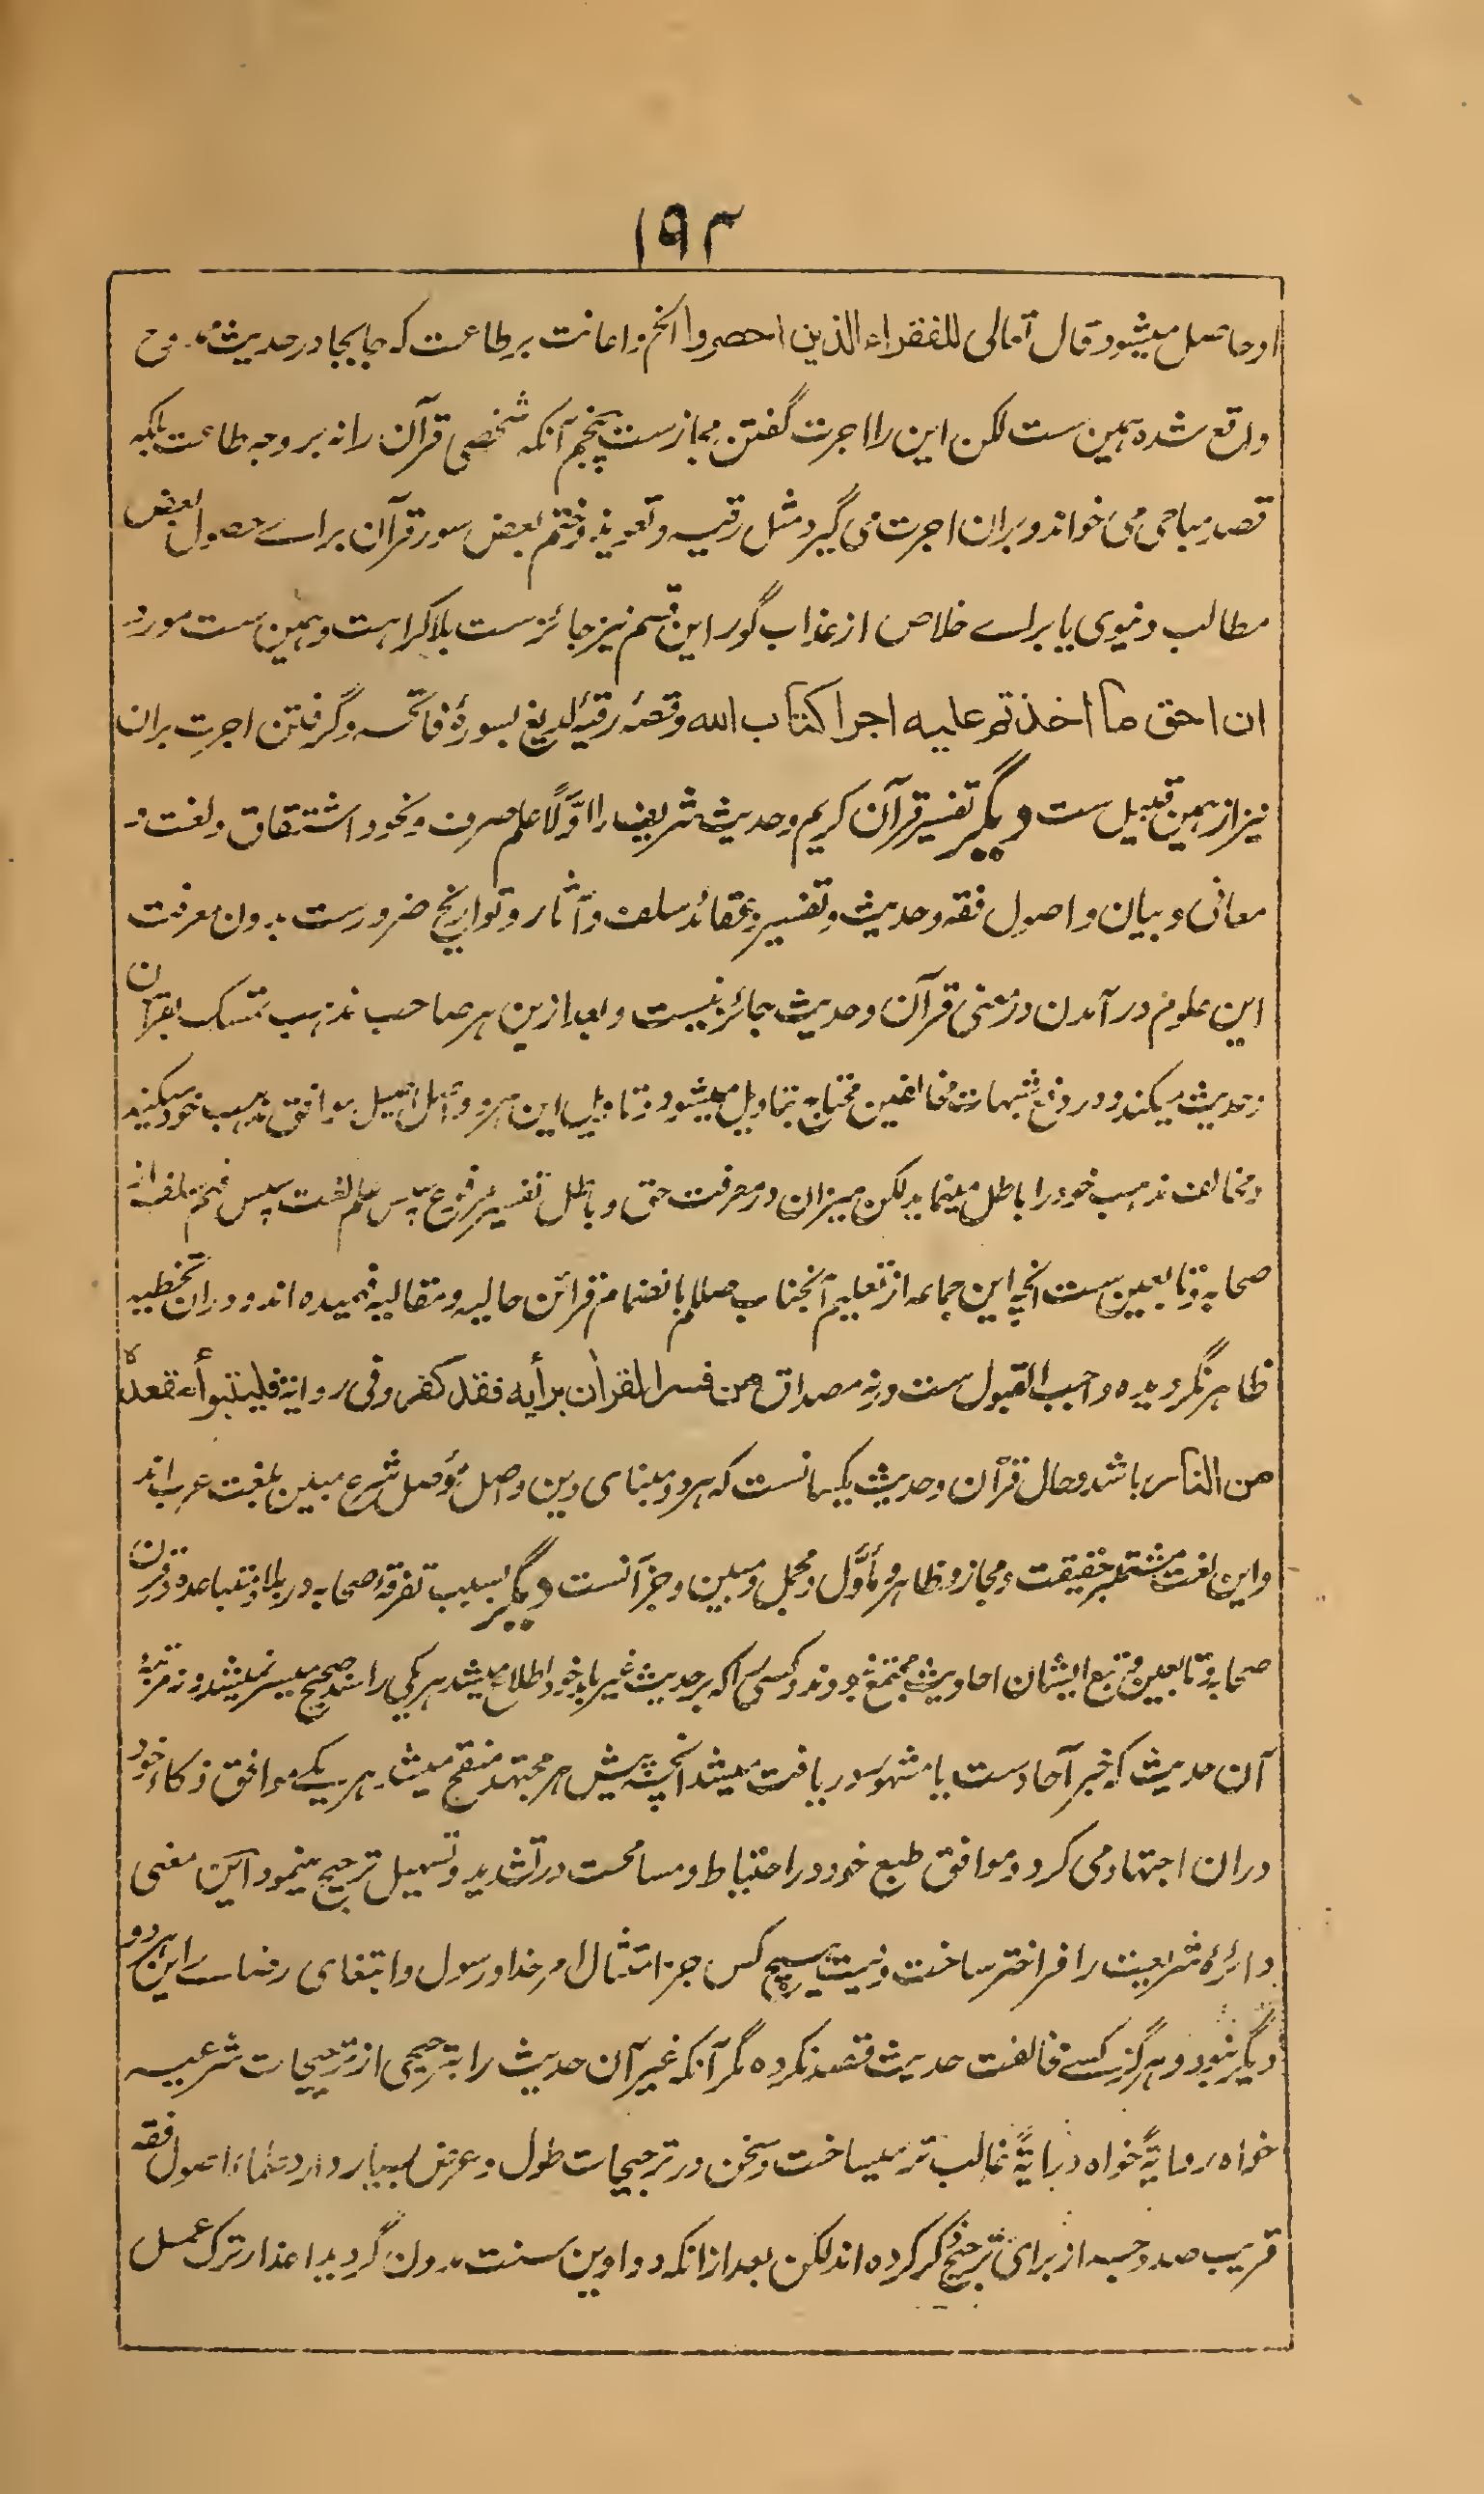 ۱۹۳
او حاصل میشود قال تعالی للفقراء الذین احصروا الخ و اعانت بر طاعت که جابجا در حدیث ممدوح
واقع شده همین ست لکن این را اجرت گفتن مجازست پنجم آنکه شخصی قرآن را نه بر وجه طاعت بلکه
قصد مباحی می خواند و بران اجرت می گیرد مثل رقیه و تعویذ و ختم بعض سور قرآن براے حصول بعض
مطالب دنیوی یا براے خلاص از عذاب گور این قسم نیز جائزست بلا کراهت و همین ست مورد
ان احق ما اخذتم علیه اجرا کتاب الله و قصهٔ رقیهٔ لدیغ بسورهٔ فاتحه و گرفتن اجرت بران
نیز از همین قبیل ست دیگر تفسیر قرآن کریم و حدیث شریف را اوّلاً علم صرف و نحو و اشتقاق و لغت و
معانی و بیان و اصول فقه و حدیث و تفسیر و عقائد سلف و آثار و تواریخ ضرورست بدون معرفت
این علوم در آمدن در معنی قرآن و حدیث جائز نیست و بعد ازین هر صاحب مذهب تمسک بقرآن
و حدیث میکند و در دفع شبهات مخالفین محتاج بتاویل میشود و تاویل این هر دو اصل اصیل موافق مذهب خود میکند
و مخالف مذهب خود را باطل مینماید لکن میزان در معرفت حق و باطل تفسیر مرفوع پس علم لغت پس فهم تلفظ
صحابه و تابعین ست آنچه این جماعه از تعلیم آنجناب صللم بانضمام قرائن حالیه و مقالیه فهمیده اند و دران تخطیه
ظاهر نگردیده واجب القبول ست ورنه مصداق من فسر القرآن برأیه فقد کفر و فی روایة فلیتبوأ مقعده
من النار باشد و حال قرآن و حدیث یکسانست که هر دو مبنای دین و اصل مؤصل شرع مبین بلغت عرب اند
و این لغت مشتمل بر حقیقت و مجاز و ظاهر و مأوّل و مجمل و مبین و جز آنست دیگر بسبب تفرقهٔ صحابه در بلاد و تباعد قرن
صحابه و تابعین و تبع ایشان احادیث مجتمع نبودند و کسی را که بر حدیث غیر بلد خود اطلاع میشد هر یکی را سند صحیح میسر نمیشد و نه مرتبهٔ
آن حدیث که خبر آحادست یا مشهور دریافت میشد آنچه پیش هر مجتهد منقح میشد هر یکے موافق ذکاء خود
دران اجتهاد می کرد و موافق طبع خود در احتیاط و مسامحت در تشدید و تسهیل ترجیح مینمود این معنی
دائرهٔ شریعت را فراختر ساخت و نیت هیچ کس جز امتثال امر خدا و رسول و ابتغای رضاے این هر دو
دیگر نبود و هرگز کسے مخالفت حدیث قصد نکرده مگر آنکه غیر آن حدیث را بترجیحی از ترجیحات شرعیه
خواه روایةً خواه درایةً غالب تر میساخت و سخن در ترجیحات طول و عرض بسیار دارد علماء اصول فقه
قریب صد وجه از برای ترجیح ذکر کرده اند لکن بعد از آنکه دواوین سنت مدون گردید اعذار ترک عمل